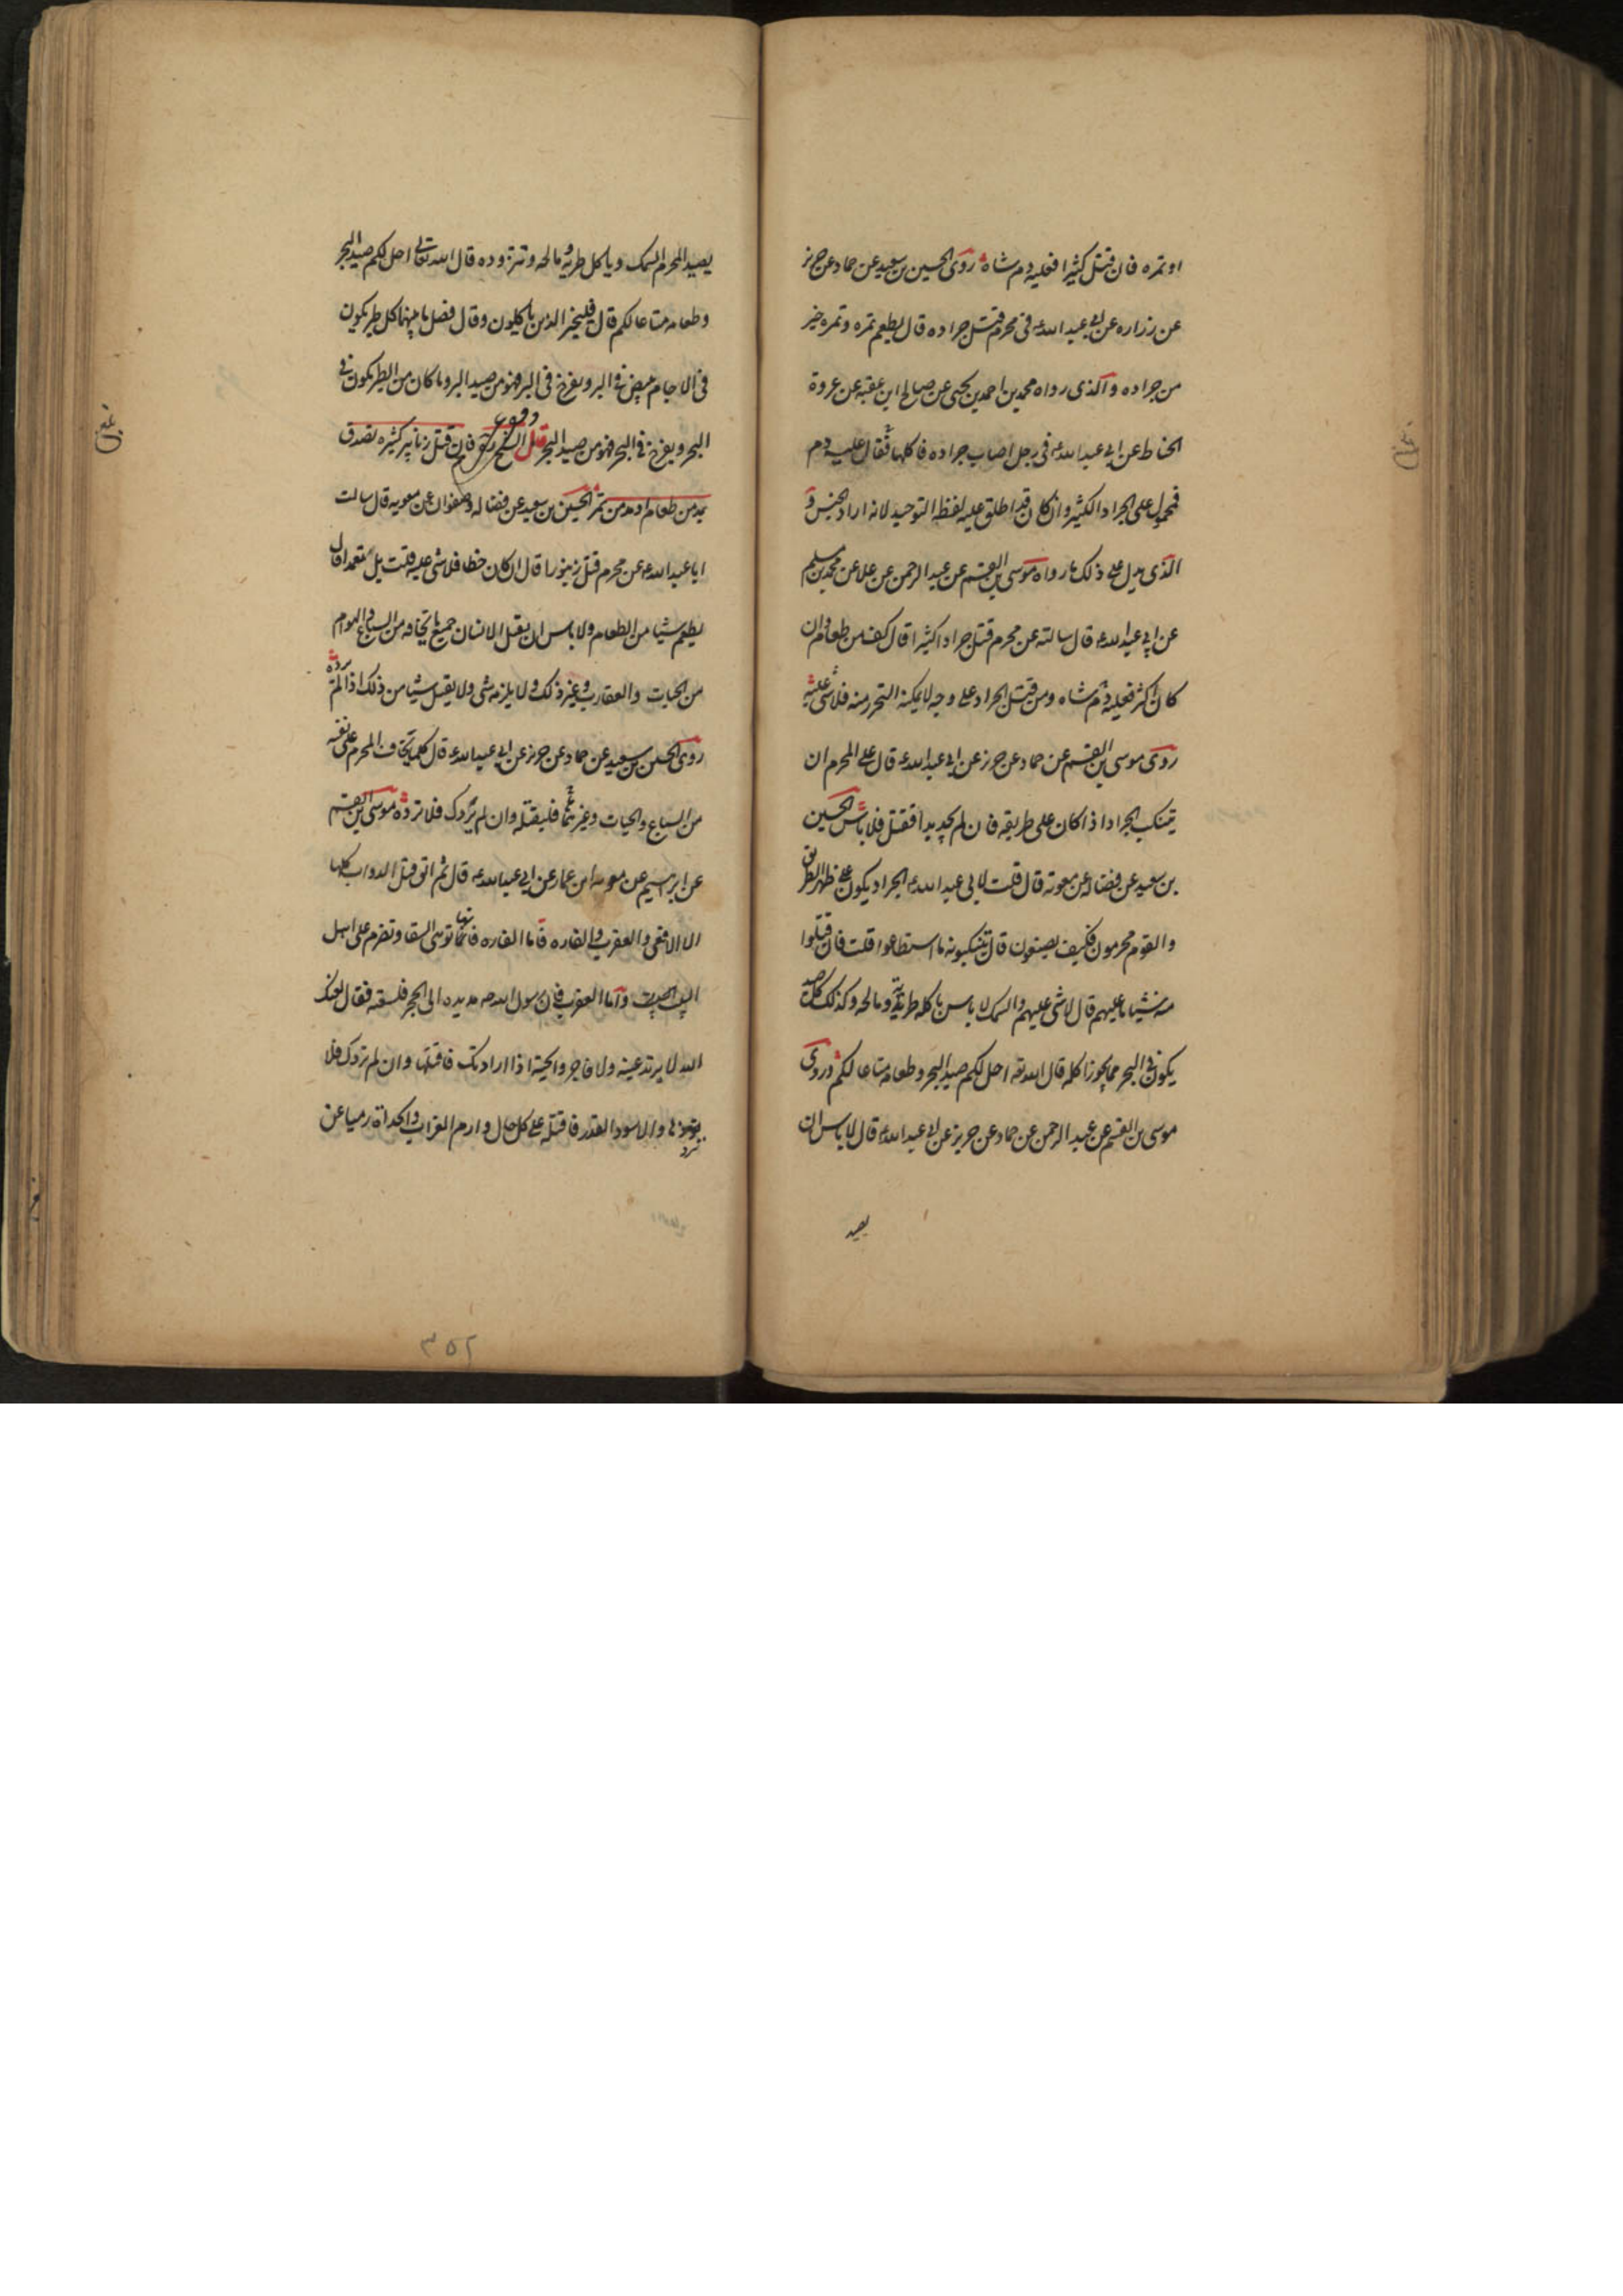 او تمره فان قتل كثيرا فعليه دم شاة روى الحسين بن سعيد عن حماد عن حريز
عن زراره عن ابي عبد الله ع في محرم قتل جراده قال يطعم تمره وتمره خير
من جراده والذى رواه محمد بن احمد بن يحيى عن صالح ابن عقبه عن عروة
الحناط عن ابي عبد الله ع في رجل اصاب جراده فاكلها فقال عليه دم
فمحمول على الجراد الكثير وان كان قد اطلق عليه لفظ التوحيد لانه اراد الجنس و
الذى يدل على ذلك ما رواه موسى بن القسم عن عبد الرحمن عن علا عن محمد بن مسلم
عن ابي عبد الله ع قال سالته عن محرم قتل جرادا كثيرا قال كف من طعام وان
كان اكثر فعليه دم شاه ومن قتل الجراد على وجه لا يمكنه التحرز منه فلا شى عليه
روى موسى بن القسم عن حماد عن حريز عن ابي عبد الله ع قال على المحرم ان
يتنكب الجراد اذا كان على طريقه فان لم يجد بدا فقتل فلا باس الحسين
بن سعيد عن فضاله عن معوية قال قلت لابي عبد الله ع الجراد يكون على ظهر الطريق
والقوم محرمون فكيف يصنعون قال يتنكبونه ما استطاعوا قلت فان قتلوا
منه شيئا ما عليهم قال لا شى عليهم والسمك لا باس باكله طريه ومالحه وكذلك كل صيد
يكون في البحر مما يجوز اكله قال الله تع احل لكم صيد البحر وطعامه متاعا لكم وروى
موسى بن القسم عن عبد الرحمن عن حماد عن حريز عن ابي عبد الله ع قال لا باس ان
يصيد
يصيد المحرم السمك وياكل طريه ومالحه وتتزوده قال الله تعالى احل لكم صيد البحر
وطعامه متاعا لكم قال فليختر الذين ياكلون وقال فصل ما بينهما كل طير يكون
في الاجام يبيض في البر ويفرخ في البر فهو من صيد البر وما كان من الطير يكون في
البحر ويفرخ في البحر فهو من صيد البحر قال الشيخ فان قتل زنابير كثيره تصدق
بمد من طعام او مد من تمر الحسين بن سعيد عن فضاله وصفوان عن معويه قال سالت
ابا عبد الله ع عن محرم قتل زنبورا قال ان كان خطا فلا شى عليه قلت بل متعمدا قال
يطعم شيئا من الطعام ولا باس ان يقتل الانسان جميع ما يخافه من السباع والهوام
من الحيات والعقارب وغير ذلك ولا يلزمه شى ولا يقتل شيئا من ذلك اذا لم يرده
روى الحسين بن سعيد عن حماد عن حريز عن ابي عبد الله ع قال كلما يخاف المحرم على نفسه
من السباع والحيات وغيرهما فليقتله وان لم يردك فلا ترده موسى بن القسم
عن ابرهيم عن معويه ابن عمار عن ابي عبد الله ع قال ثم اتق قتل الدواب كلها
الا الافعى والعقرب والفاره فاما الفاره فانها توهى السقا وتضرم على اهل
البيت البيت واما العقرب فان رسول الله ص مد يده الى الحجر فلسعته فقال لعنك
الله لا برا تدعينه ولا فاجر والحية اذا ارادتك فاقتلها وان لم تردك فلا
تردها والاسود الغدر فاقتله على كل حال وارم الغراب والحداة رميا عن
٣٥٢